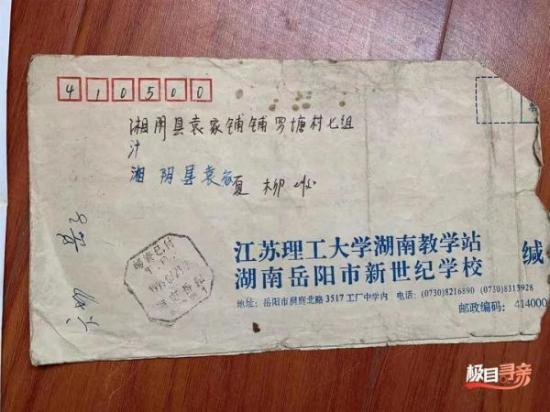 410500
湘阴县袁家铺铺罗塘村七组
湘阴县袁家
夏柳
江苏理工大学湖南教学站
湖南岳阳市新世纪学校
缄
地址：岳阳市洞庭北路3517工厂中学内 电话：(0730)8216890 (0730)8313928
邮政编码：414000
邮资已付
极目寻亲